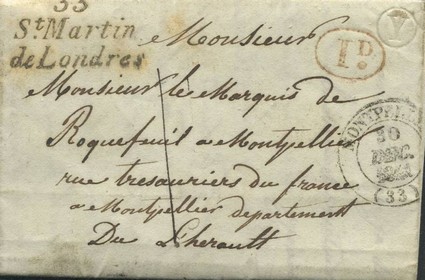 33
St Martin
de Londres
Monsieur
1D
Monsieur le Marquis de
Roquefeuil a Montpellier
rue tresauriers du france
a Montpellier departement
Du L'herault
MONTPELLIER
20
DEC
(33)